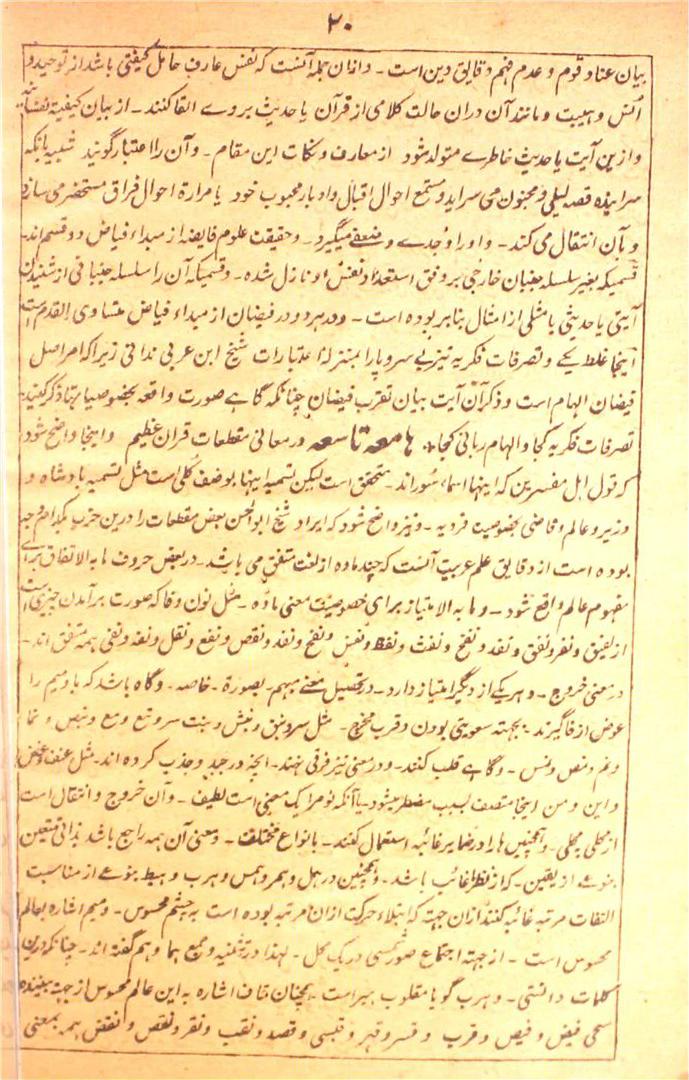 ۲۰
بیان عناد قوم و عدم فهم دقایق دین است - و ازان جمله آنست که نفس عارف حامل کیفیتی باشد از توحید و
انس و هیبت و مانند آن دران حالت کلامی از قرآن یا حدیث بر وے القا کنند - از بیان کیفیة
و ازین آیت یا حدیث خاطرے متولد شود از معارف و نکات این مقام - و آن را اعتبار گویند شبیه بانکه
سراینده قصه لیلی و مجنون می سراید و مستمع احوال اقبال و ادبار محبوب خود یا مرارة احوال فراق مستحضر می سازد
و بآن انتقال می کند - و او را وجدے و میگیرد - و حقیقت علوم فایضه از مبداء فیاض دو قسم اند
قسمیکه بغیر سلسله جنبان خارجی بر وفق استعداد نفس او نازل شده - و قسمیکه آن را سلسله جنبانی از شنیدن
آیتی یا حدیثی یا مثلی از امثال بنابر بوده است - و در هر دو در فیضان از مبداء فیاض متساوی القدم است
اینجا غلط نکنی و تصرفات فکریه نیز بی سر و پا را بمنزله اعتبارات شیخ ابن عربی ندانی زیرا که امر اصل
فیضان الهام است و ذکر آن آیت بیان تقریب فیضان چنانکه گاهے صورت واقعه بخصوصیاتها ذکر کنند
تصرفات فکریه کجا و الهام ربانی کجا * هامعه تاسعه در معانی مقطعات قرآن عظیم و اینجا واضح شود
که قول اهل مفسرین که اینها اسماء سور اند - متحقق است لیکن تسمیه اینها بوصف کلی است مثل تسمیه بادشاه و
وزیر و عالم و قاضی بخصوصیت فردیه - و نیز واضح شود که ایراد شیخ ابو الحسن بعض مقطعات را درین حزب کدام وجه
بوده است از دقایق علم عربیت آنست که چند ماده از لغت متفق می باشد - در بعض حروف ما به الاتفاق براے
مفهوم عالم واقع شود - و ما به الامتیاز برای خصوصیت معنی ماده - مثل نون و فا که صورت برآمدن چیزی است
از نفیق و نفر و نفق و نفد و نفخ و نفث و نفظ و نفس و نفح و نفذ و نقص و نفع و نفل و نفه و نفی همه متفق اند -
در معنی خروج - و هر یکے از دیگر امتیاز دارد - در تحصیل معنے مبهم - بصورة - خاصه - و گاه باشد که با و میم را
عوض از فا گیرند - بجهته سعویتی بودن و قرب مخرج - مثل و نبق و نبش و نبت و نبع و نبص و نما
و نم و نمص و نمس - و گاهے قلب کنند - و در معنی نیز فرقی نهند - انچه در جبذ و جذب کرده اند - مثل عنف و
و این و من اینجا متصف لبسب مضطر میشود - یا آنکه نو مرا یک معنی است لطیف - و آن خروج و انتقال است
از محلی بمحلی - و همچنین ها را در ضمایر غائبه استعمال کنند - بانواع مختلف - و معنی آن همه راجع باشد بذاتی متعین
بنوعے از یقین - که از نظر غائب باشد - و همچنین در هل و همر و همس و هرب و هبط بنوعے از مناسبت
التفات مرتبه غائب کنند ازان جهت که ابتداء حرکت ازان مرتبه بوده است به چشم محسوس - و میم اشاره بعالم
محسوس است - از جهته اجتماع صور شمسی در یک محل - لهذا در تثنیه و جمع هما و هم گفته اند - چنانکه درین
کلمات دانستی - و هرب گویا مقلوب بهر است - همچنان قاف اشاره به این عالم محسوس از جهت
سعی فیض و فیص و قرب و قسر و قهر و قبسی و قصد و نقب و نقر و نقص و انقض همه بمعنی